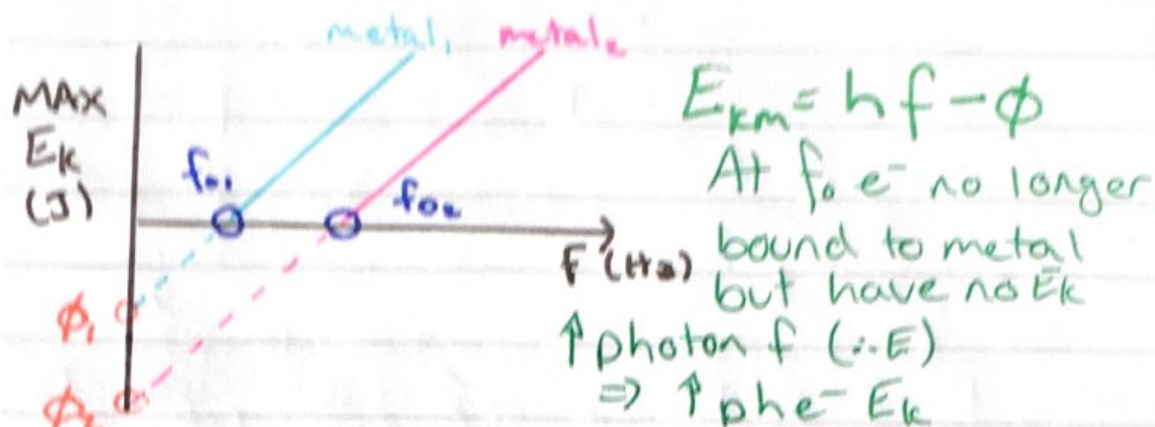 metal₁
metal₂
MAX
Eₖ
(J)
f₀₁
f₀₂
F (Hz)
ϕ₁
ϕ₂
Eₖₘ = hf - ϕ
At f₀ e⁻ no longer
bound to metal
but have no Eₖ
↑ photon f (∴E)
⇒ ↑ phe⁻ Eₖ